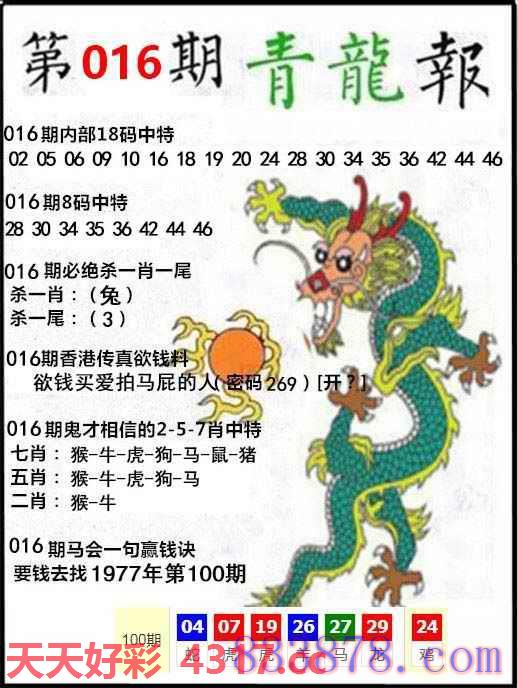 第016期 青龍 報
016期内部18码中特
02 05 06 09 10 16 18 19 20 24 28 30 34 35 36 42 44 46
016期8码中特
28 30 34 35 36 42 44 46
016期必绝杀一肖一尾
杀一肖：（兔）
杀一尾：（3）
016期香港传真欲钱料
欲钱买爱拍马屁的人(密码269)[开？]
016期鬼才相信的2-5-7肖中特
七肖：猴-牛-虎-狗-马-鼠-猪
五肖：猴-牛-虎-狗-马
二肖：猴-牛
016期马会一句赢钱诀
要钱去找1977年第100期
100期 04 07 19 26 27 29 24
蛇 虎 虎 羊 马 龙 鸡
天天好彩 4317.cc
833878.com